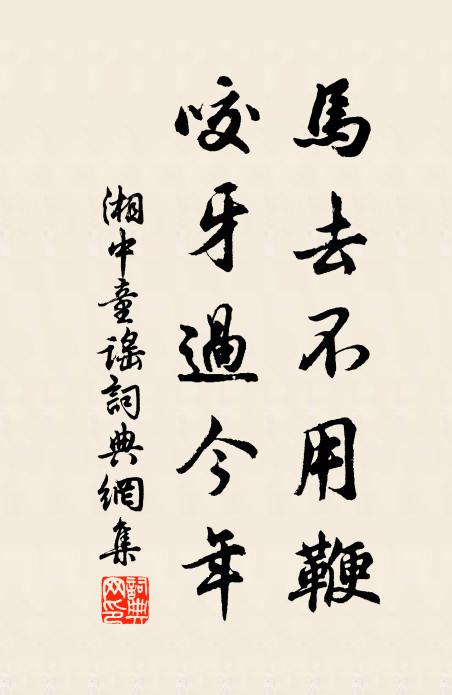 馬去不用鞭
咬牙過今年
湘中童謠詞典網集
詞典网印